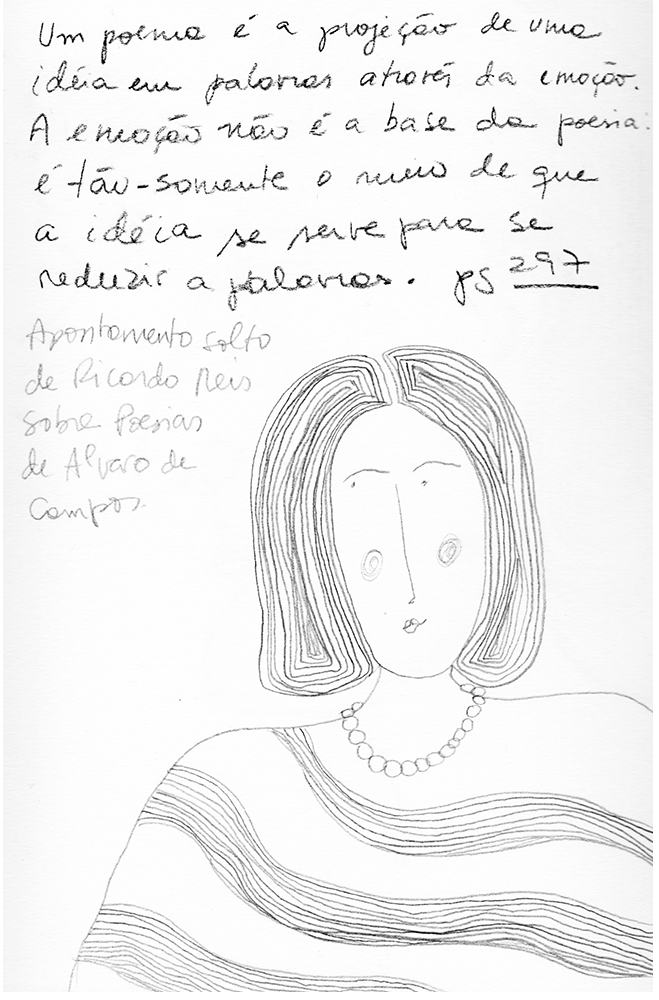 Um poema é a projeção de uma
idéia em palavras através da emoção.
A emoção não é a base da poesia:
é tão-somente o meio de que
a idéia se serve para se
reduzir a palavras. pg 297
Apontamento solto
de Ricardo Reis
sobre Poesias
de Alvaro de
Campos.